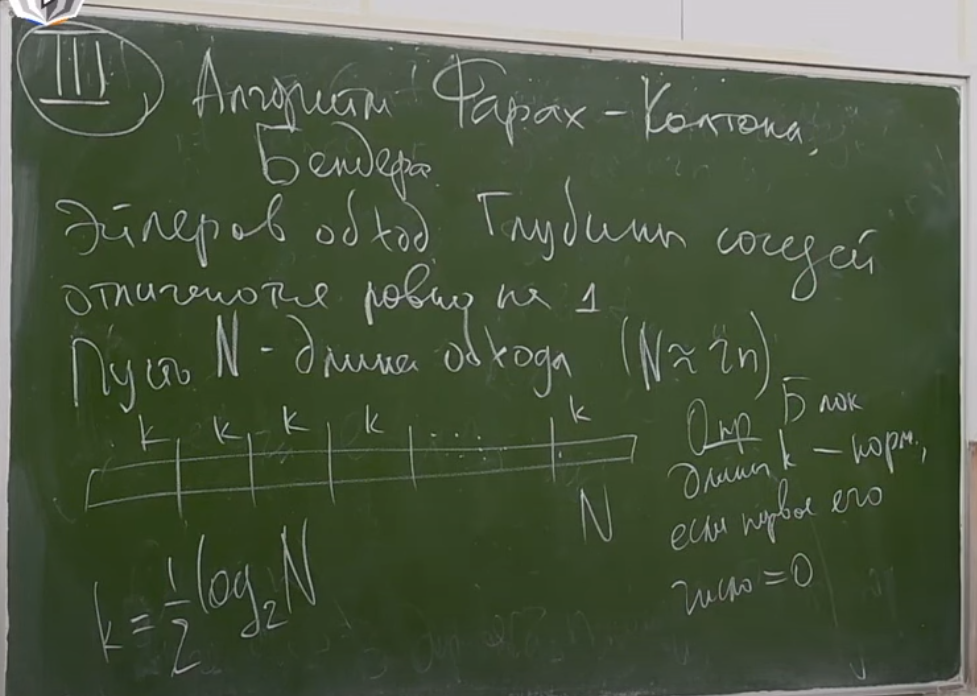 III
Алгоритм Фарах-Колтона,
Бендера
Эйлеров обход Глубины соседей
отличаются ровно на 1
Пусть N - длина обхода (N ≈ 2n)
k k k k ... k
N
k = 1/2 log₂ N
Опр Блок
длины k - норм,
если первое его
число = 0